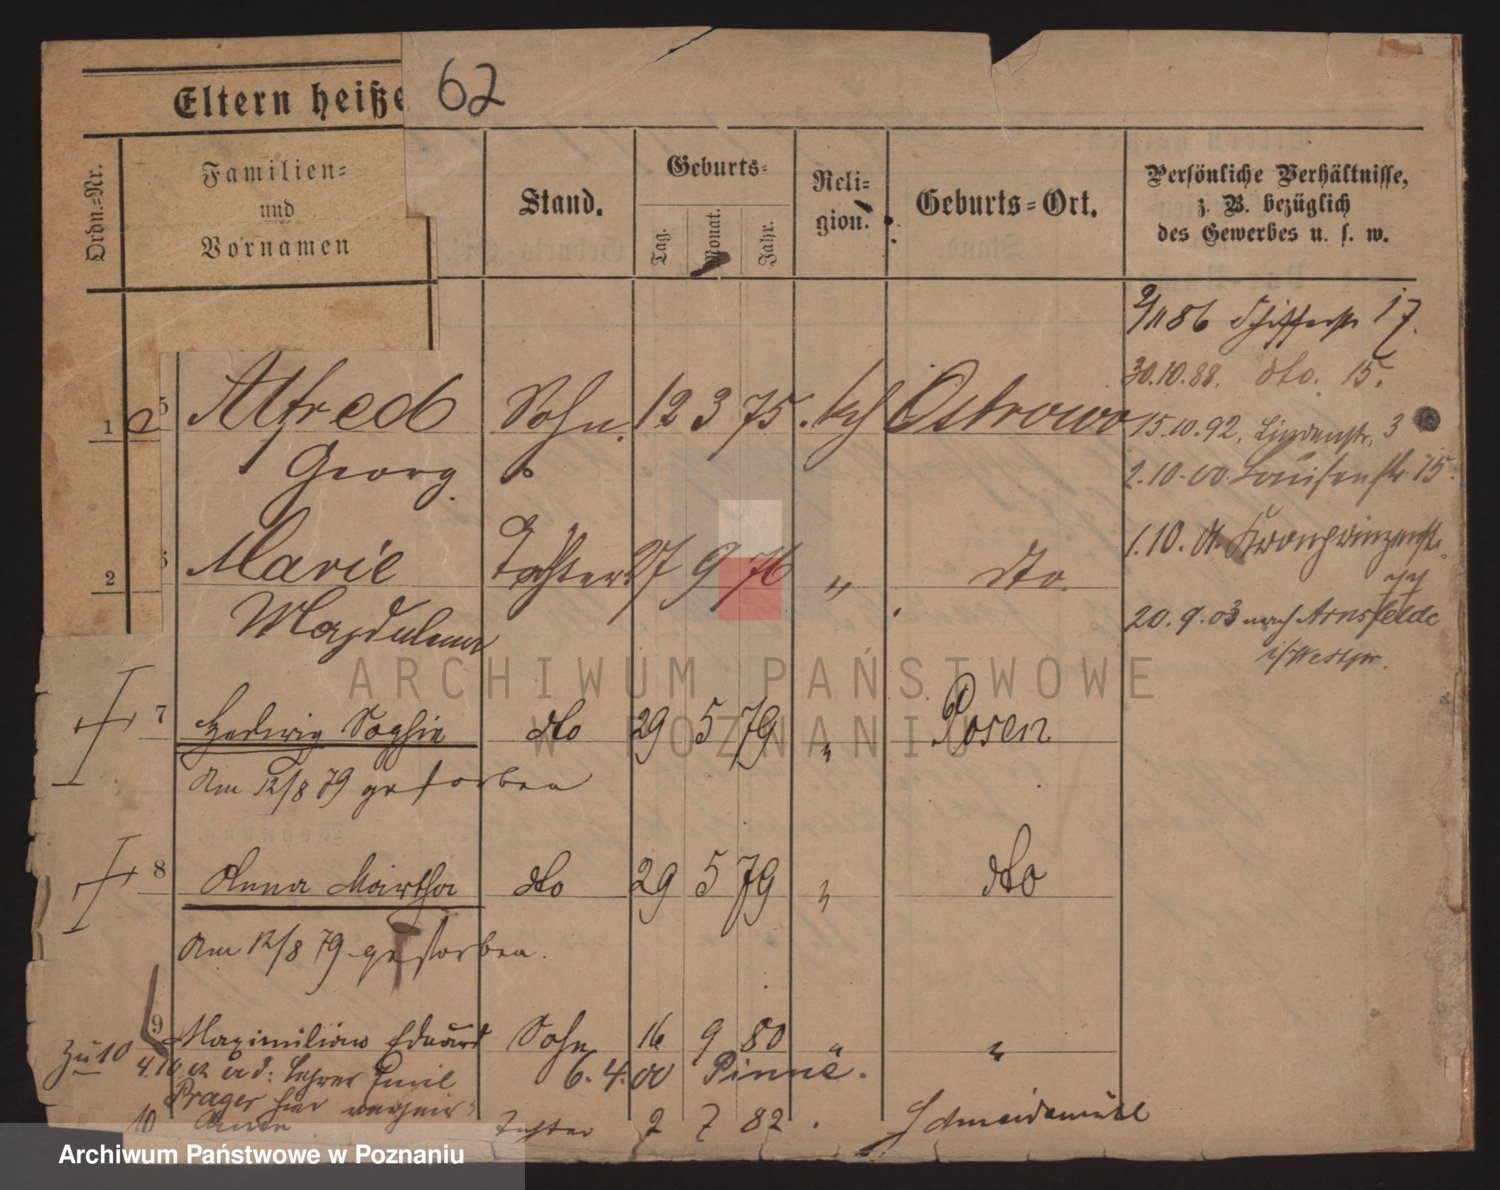 62
Eltern heiße
Ordn.-Nr.
Familien-
und
Vornamen
Stand.
Geburts-
Tag.
Monat.
Jahr.
Reli-
gion.
Geburts-Ort.
Persönliche Verhältnisse,
z. B. bezüglich
des Gewerbes u. s. w.
9/11 86 Schifferstr 17.
30.10.88. dto. 15.
1 5 Alfred Sohn. 12 3 75. kth Ostrowo
15.10.92. Lindenstr. 3
Georg.
2.10.00. Louisenstr. 15.
2 Marie Tochter 27 9 76 " dto.
1.10. Kronprinzenstr.
Magdalena
20.9.03 nach Arnsfelde
i/Westpr.
7 Hedwig Sophie dto 29 5 79 " Posen
Am 12/8 79 gestorben
8 Anna Martha dto 29 5 79 " dto
Am 12/8 79 gestorben.
9 Maximilian Eduard Sohn 16 9 80 " "
6.4.00 Pinne.
Zu 10
Lehrer Emil
Prager hier
10 Tochter 2 7 82. Schneidemühl
ARCHIWUM PAŃSTWOWE
W POZNANIU
Archiwum Państwowe w Poznaniu